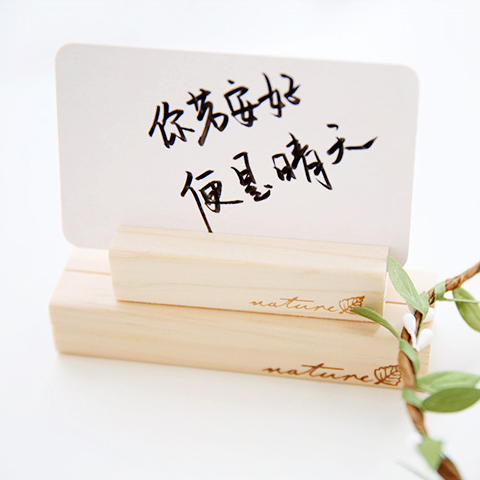 你若安好
便是晴天
nature
nature